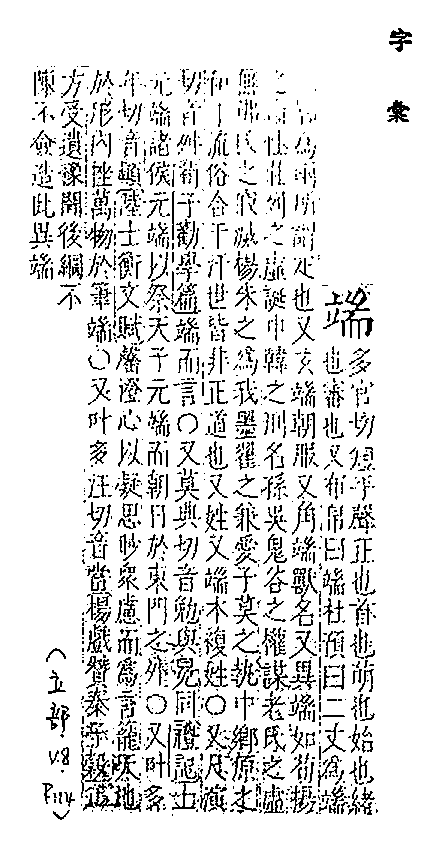 字彙
端 多官切短平聲正也首也萌也始也緒
也審也又布帛曰端杜預曰二丈為端
為兩所謂疋也又玄端朝服又角端獸名又異端如荀揚
之性莊列之虛誕申韓之刑名孫吳鬼谷之權謀老氏之虛
無佛氏之寂滅楊朱之為我墨翟之兼愛子莫之執中鄉原之
同流俗合乎汙世皆非正道也又姓又端木複姓〇又尺演
切音舛荀子勸學篇端而言〇又莫典切音勉與冕同禮記士
元端諸侯元端以祭天子元端而朝日於東門之外〇又叶多
年切音顛陸士衡文賦罄澄心以凝思眇眾慮而為言籠天地
於形內挫萬物於筆端〇又叶多汪切音當楊戲贊秦子毅
方受遺豫聞後綱不
陳不僉造此異端
(立部.V.8.P.114)